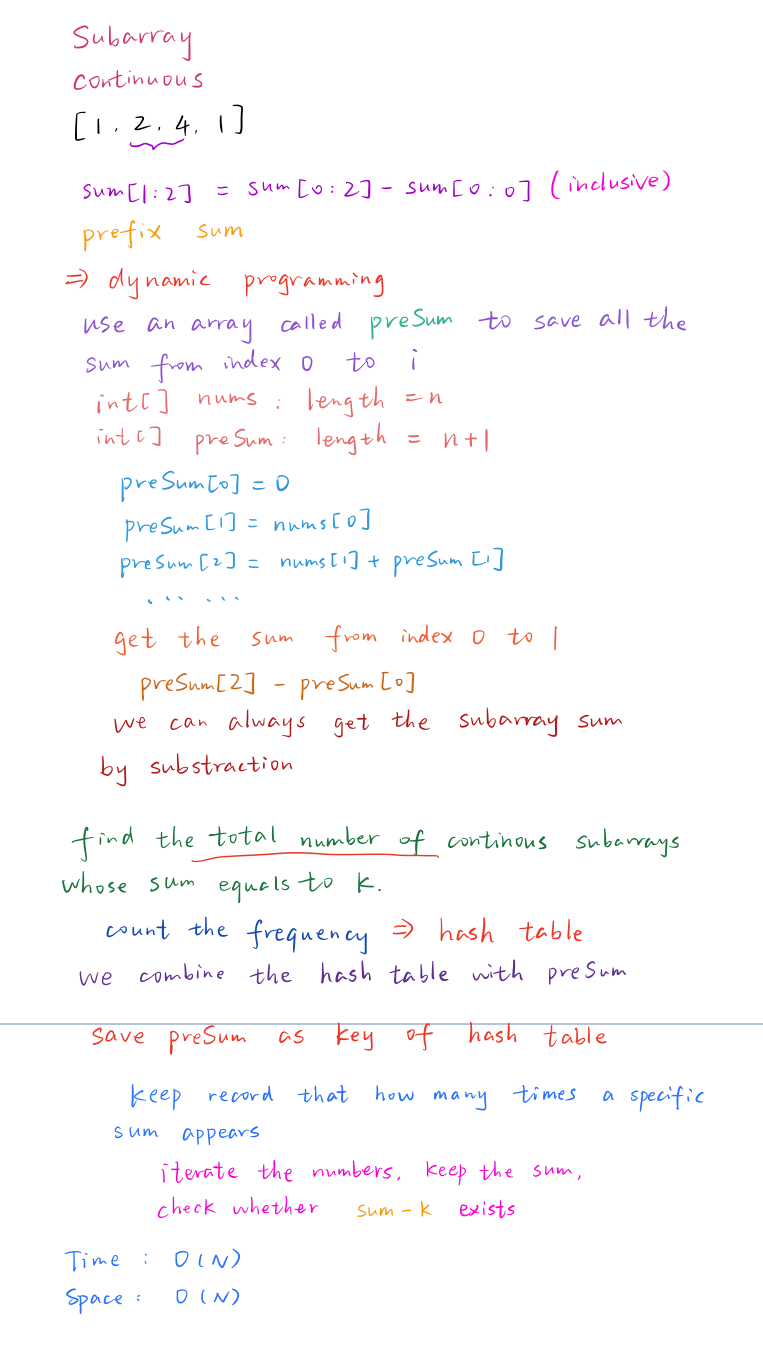 Subarray
continuous
[1, 2, 4, 1]
sum[1:2] = sum[0:2] - sum[0:0] (inclusive)
prefix sum
⇒ dynamic programming
use an array called preSum to save all the
sum from index 0 to i
int[] nums : length = n
int[] preSum : length = n+1
preSum[0] = 0
preSum[1] = nums[0]
preSum[2] = nums[1] + preSum[1]
... ...
get the sum from index 0 to 1
preSum[2] - preSum[0]
we can always get the subarray sum
by substraction
find the total number of continous subarrays
whose sum equals to k.
count the frequency ⇒ hash table
we combine the hash table with preSum
save preSum as key of hash table
keep record that how many times a specific
sum appears
iterate the numbers, keep the sum,
check whether sum - k exists
Time : O(N)
Space : O(N)